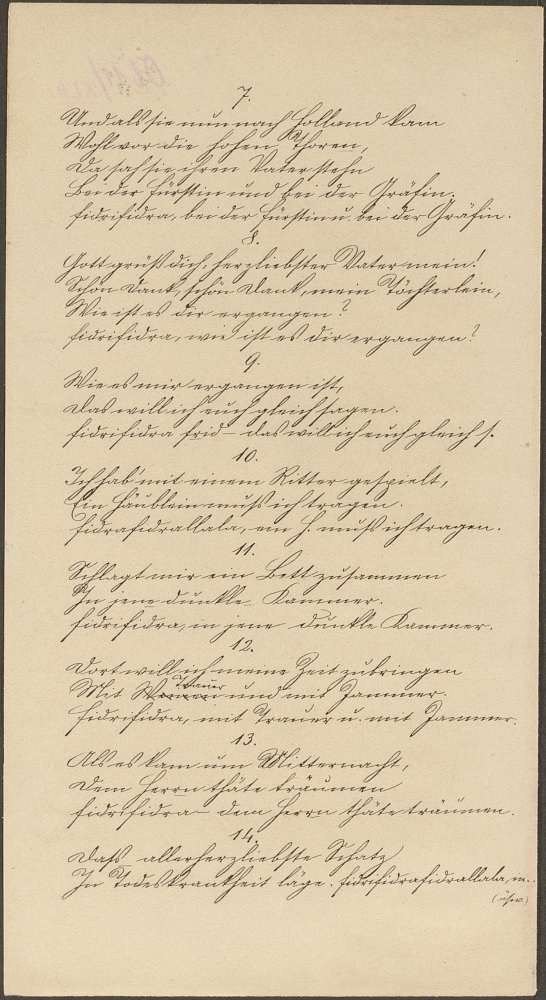 7.
Und als sie nun nach Holland kam
Wohl vor die hohen Thoren,
Da sah sie ihren Vater stehn
Bei der Fürstin und bei der Gräfin.
fidrifidra, bei der Fürstin u. bei der Gräfin.
8.
Gott grüß dich, herzliebster Vater mein!
Schön Dank, schön Dank, mein Töchterlein,
Wie ist es dir ergangen?
fidrifidra, wie ist es dir ergangen?
9.
Wie es mir ergangen ist,
Das will ich euch gleich sagen.
fidrifidra frid – das will ich euch gleich s.
10.
Ich hab' mit einem Ritter gespielt,
Ein Häublein muß ich tragen.
fidrafidrallala, ein H. muß ich tragen.
11.
Schlagt mir ein Bett zusammen
In jene dunkle Kammer.
fidrifidra, in jene dunkle Kammer.
12.
Dort will ich meine Zeit zubringen
Trauer
Mit und mit Jammer.
fidrifidra, mit Trauer u. mit Jammer.
13.
Als es kam um Mitternacht,
Dem Herrn thäte träumen
fidrifidra – dem Herrn thäte träumen.
14.
Daß allerherzliebste Schatz
In Todeskrankheit läge. fidrifidrafidrallala, in..